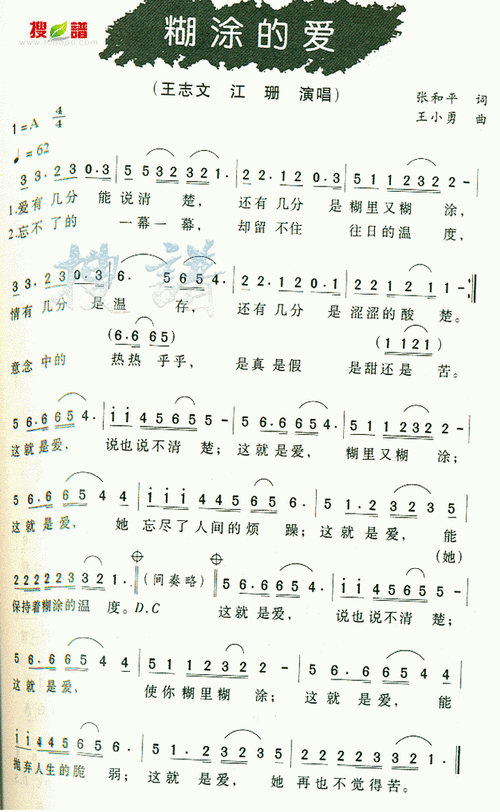 搜谱
www.sooopu.com
糊涂的爱
(王志文 江 珊 演唱)
张和平 词
王小勇 曲
1=A 4/4
♩=62
3 3. 2 3 0. 3 | 5 5 3 2 3 2 1. | 2 2. 1 2 0. 1 | 5 1 1 2 3 2 2 -
1.爱有几分 能说清 楚, 还有几分 是糊里又糊 涂,
2.忘不了的 一幕一 幕, 却留不住 往日的温 度,
3 3. 2 3 0. 3 | 6. 5 6 5 4 | 2 2. 1 2 0. 1 | 5 1 1 2 2 1 1 -
情有几分 是温 存, 还有几分 是涩涩的酸 楚。
(6. 6 6 5) (1 1 2 1)
意念中的 热热乎乎, 是真是假 是甜还是苦。
5 6. 6 6 5 4. | i i 4 5 6 5 5 - | 5 6. 6 6 5 4 - | 5 1 1 2 3 2 2 -
这就是爱, 说也说不清 楚; 这就是爱, 糊里又糊 涂;
5 6. 6 6 5 4 4 | i i i 4 5 6 5 6. | 5 1. 2 3 2 3 5
这就是爱, 她 忘尽了人间的烦 躁; 这就是爱, 能
(她)
2 2 2 2 2 3 3 2 1. (间奏略) 5 6. 6 6 5 4. | i i 4 5 6 5 5 -
保持着糊涂的温 度。D.C 这就是爱, 说也说不清 楚;
5 6. 6 6 5 4 4 | 5 1 1 2 3 2 2 - | 5 6. 6 6 5 4 4
这就是爱, 使你糊里糊 涂; 这就是爱, 能
i i 4 4 5 5 6. | 5 1. 2 3 2 3 5 | 2 2 2 2 3 2 1.
抛弃人生的脆 弱; 这就是爱, 她 再也不觉得苦。